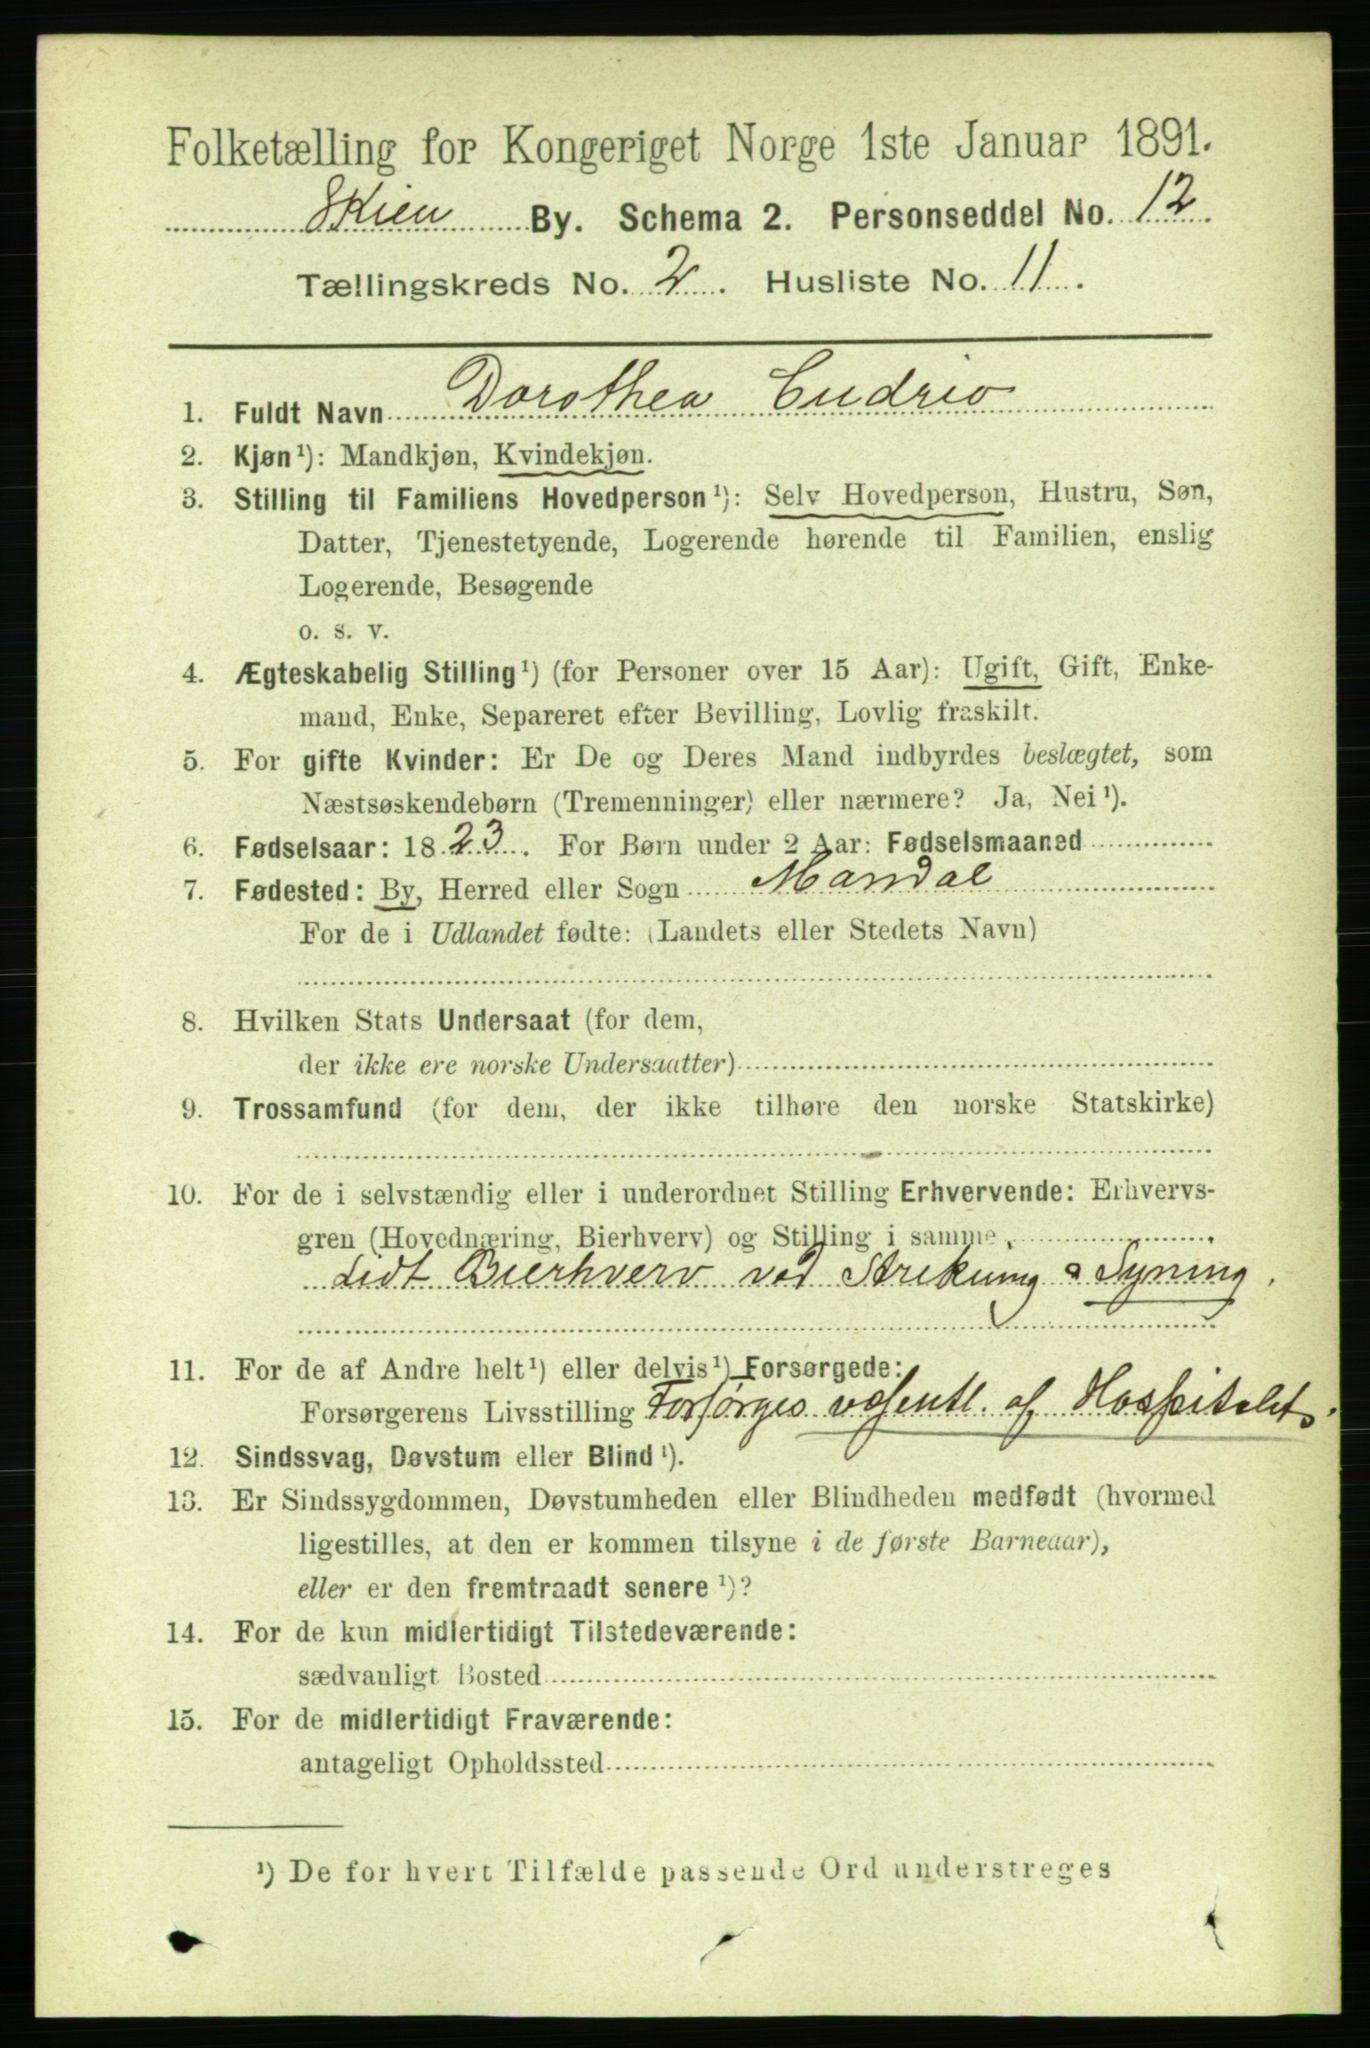 Folketælling for Kongeriget Norge 1ste Januar 1891.
Skien By. Schema 2. Personseddel No. 12.
Tællingskreds No. 2. Husliste No. 11.
1. Fuldt Navn Dorothea Cudrio
2. Kjøn¹): Mandkjøn, Kvindekjøn.
3. Stilling til Familiens Hovedperson¹): Selv Hovedperson, Hustru, Søn,
Datter, Tjenestetyende, Logerende hørende til Familien, enslig
Logerende, Besøgende
o. s. v.
4. Ægteskabelig Stilling¹) (for Personer over 15 Aar): Ugift, Gift, Enke-
mand, Enke, Separeret efter Bevilling, Lovlig fraskilt.
5. For gifte Kvinder: Er De og Deres Mand indbyrdes beslægtet, som
Næstsøskendebørn (Tremenninger) eller nærmere? Ja, Nei¹).
6. Fødselsaar: 1823. For Børn under 2 Aar: Fødselsmaaned
7. Fødested: By, Herred eller Sogn Mandal
For de i Udlandet fødte: (Landets eller Stedets Navn)
8. Hvilken Stats Undersaat (for dem,
der ikke ere norske Undersaatter)
9. Trossamfund (for dem, der ikke tilhøre den norske Statskirke)
10. For de i selvstændig eller i underordnet Stilling Erhvervende: Erhvervs-
gren (Hovednæring, Bierhverv) og Stilling i samme.
Lidt Bierhverv ved Strikning & Syning.
11. For de af Andre helt¹) eller delvis¹) Forsørgede:
Forsørgerens Livsstilling Forsørges væsentl. af Hospitalet.
12. Sindssvag, Døvstum eller Blind¹).
13. Er Sindssygdommen, Døvstumheden eller Blindheden medfødt (hvormed
ligestilles, at den er kommen tilsyne i de første Barneaar),
eller er den fremtraadt senere¹)?
14. For de kun midlertidigt Tilstedeværende:
sædvanligt Bosted
15. For de midlertidigt Fraværende:
antageligt Opholdssted
¹) De for hvert Tilfælde passende Ord understreges